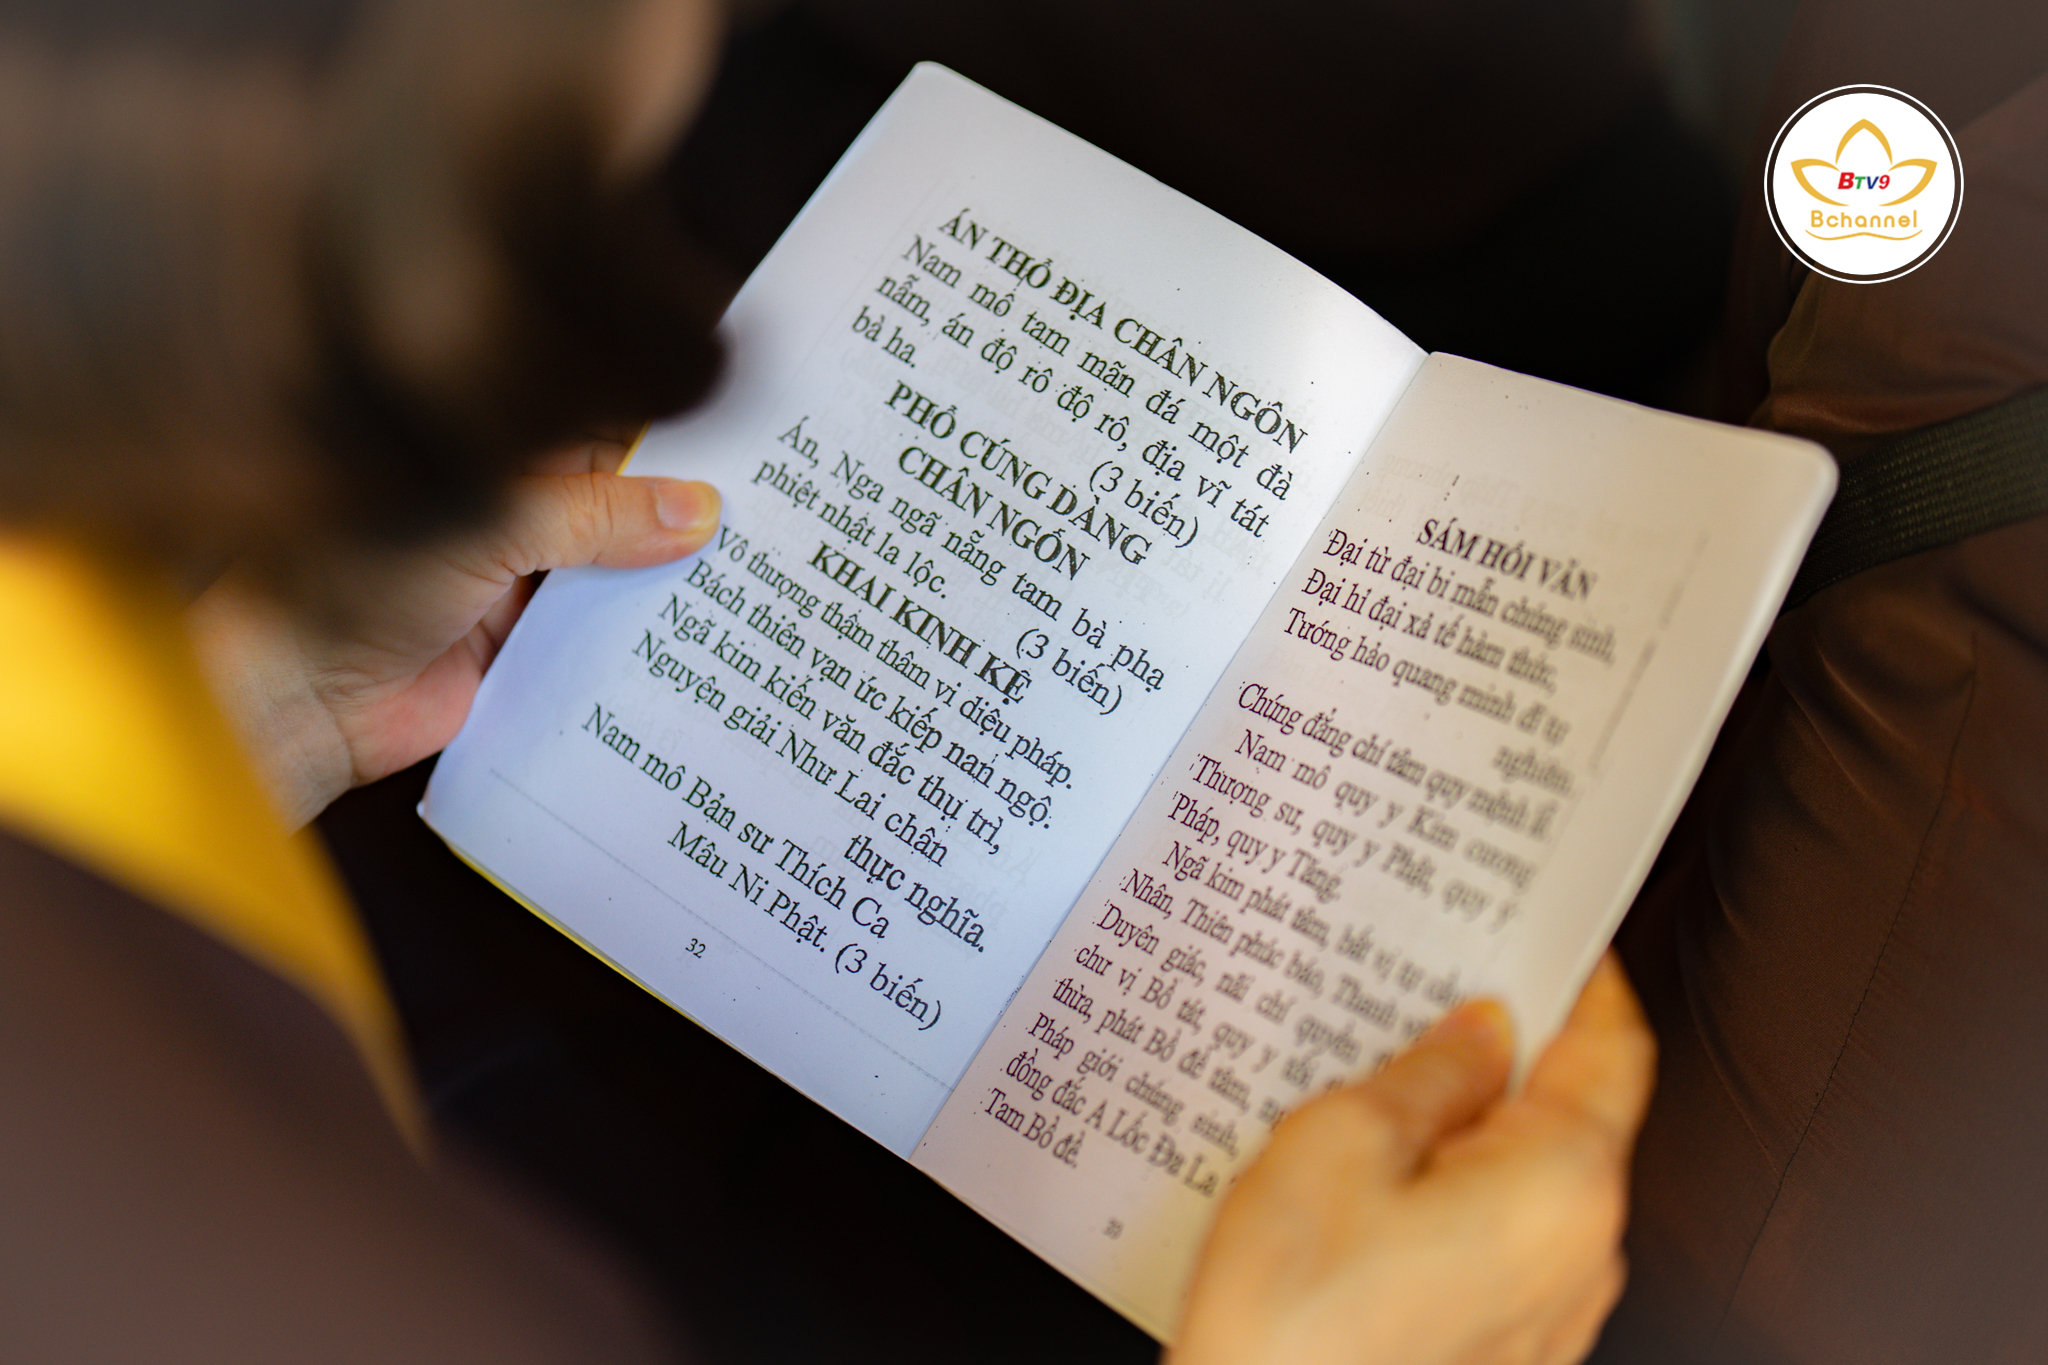 ÁN THỔ ĐỊA CHÂN NGÔN
Nam mô tam mãn đá một đà
nẫm, án độ rô độ rô, địa vĩ tát
bà ha. (3 biến)
PHỔ CÚNG DÀNG
CHÂN NGÔN
Án, Nga ngã nẵng tam bà phạ
phiệt nhật la lộc. (3 biến)
KHAI KINH KỆ
Vô thượng thậm thâm vi diệu pháp.
Bách thiên vạn ức kiếp nan ngộ.
Ngã kim kiến văn đắc thụ trì,
Nguyện giải Như Lai chân
thực nghĩa.
Nam mô Bản sư Thích Ca
Mâu Ni Phật. (3 biến)
32
SÁM HỐI VĂN
Đại từ đại bi mẫn chúng sinh,
Đại hỉ đại xả tế hàm thức,
Tướng hảo quang minh dĩ tự
nghiêm.
Chúng đẳng chí tâm quy mệnh lễ.
Nam mô quy y Kim cương
Thượng sư, quy y Phật, quy y
Pháp, quy y Tăng.
Ngã kim phát tâm, bất vị tự cầu
Nhân, Thiên phúc báo, Thanh
Duyên giác, nãi chí quyền
chư vị Bồ tát, quy y tối
thừa, phát Bồ đề tâm,
Pháp giới chúng sinh,
đồng đắc A Lốc Đa La
Tam Bồ đề.
33
BTV9
Bchannel